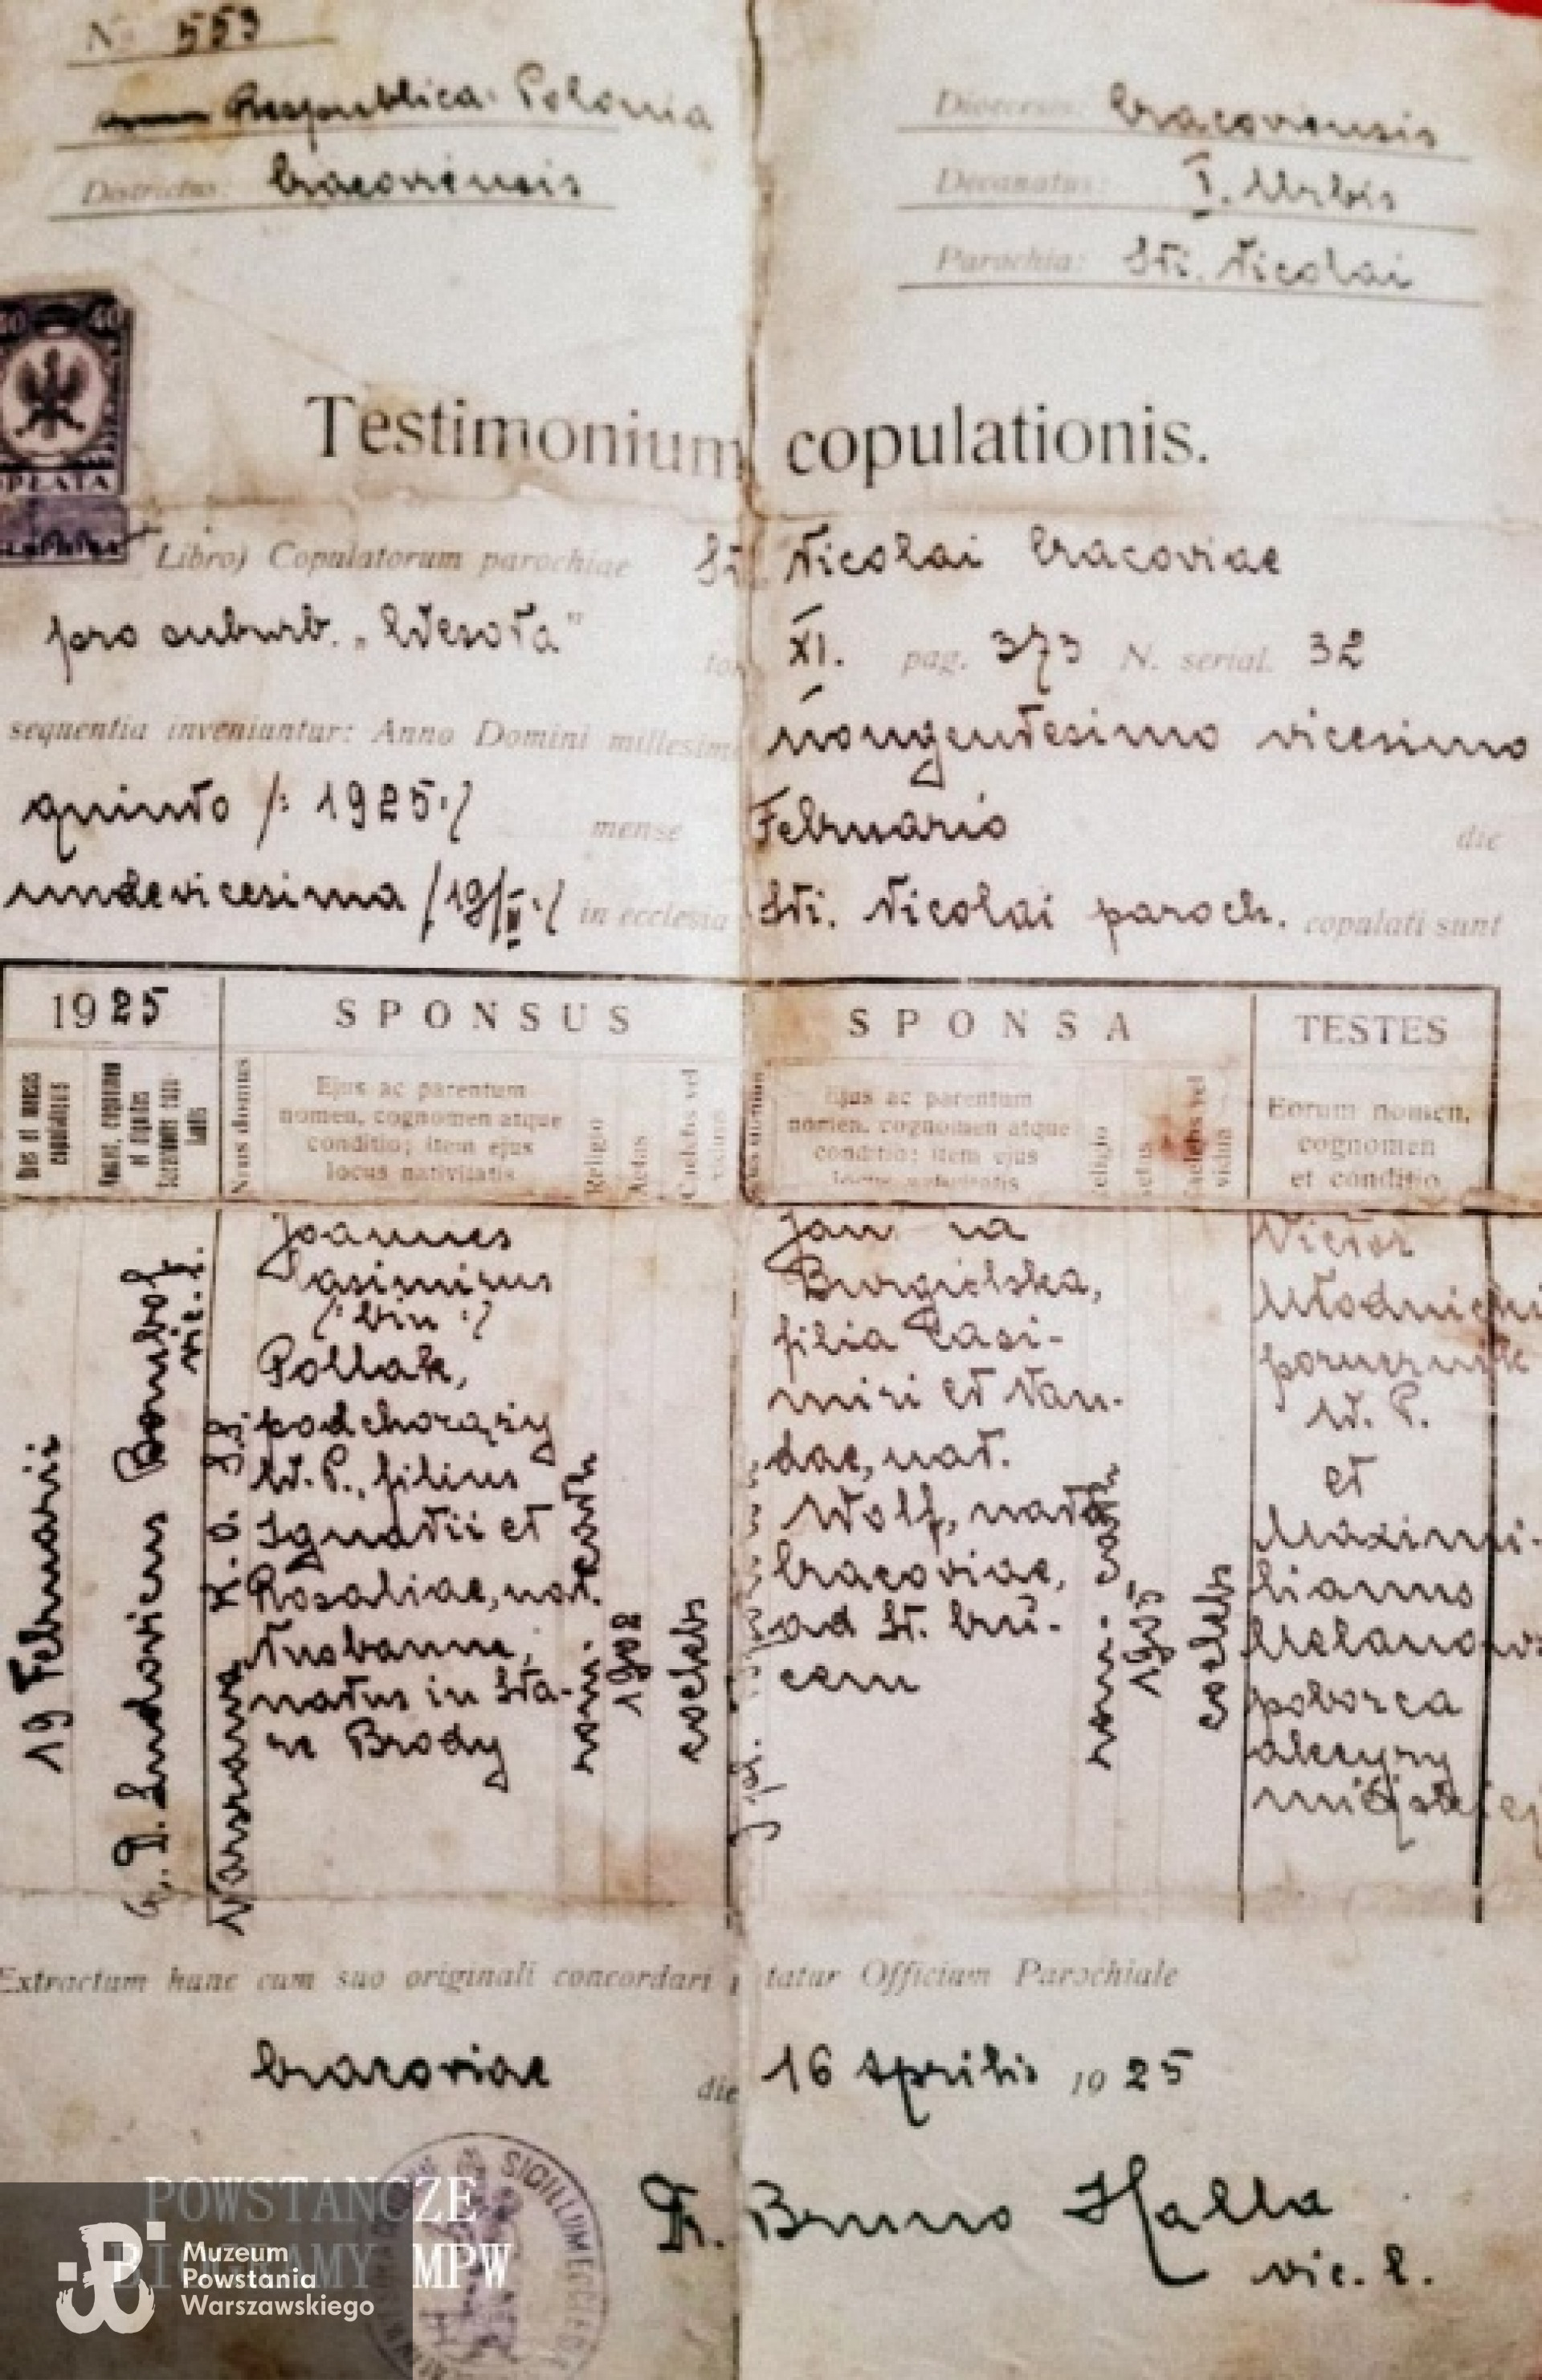 N. 553
Respublica Polonia
Districtus: Cracoviensis
Dioecesis: Cracoviensis
Decanatus: I. Urbis
Parochia: Sti. Nicolai
40 40
OPŁATA
Testimonium copulationis.
Libro) Copulatorum parochiae Sti Nicolai Cracoviae
pro suburb. „Wesoła" tom XI. pag. 373 N. serial. 32
sequentia inveniuntur: Anno Domini millesimo nongentesimo vicesimo
quinto /: 1925 :/ mense Februario die
undevicesima /19/II :/ in ecclesia Sti. Nicolai paroch. copulati sunt
1925
SPONSUS
SPONSA
TESTES
Dies et mensis copulationis
Numerus domus
Ejus ac parentum
nomen, cognomen atque
conditio; item ejus
locus nativitatis
Religio
Aetas
Caelebs vel viduus
Ejus ac parentum
nomen, cognomen atque
conditio; item ejus
locus nativitatis
Religio
Aetas
Caelebs vel vidua
Eorum nomen,
cognomen
et conditio
19 Februarii
Ludovicus Bombol
vic. l.
Warszawa
Joannes
Casimirus
/: bin :/
Pollak,
podchorąży
W. P., filius
Ignatii et
Rosaliae, nat.
Nusbaum,
natus in Sta-
re Brody
rom. cath
1902
coelebs
Burgielska,
filia Casi-
miri et Van-
dae, nat.
Wolf, nata
Cracoviae,
ad St. Cru-
cem
rom. cath
1905
coelebs
Victor
Młodnicki
porucznik
W. P.
et
Maximi-
lianus
Melanows
poborca
akcyzy
miejskiej
Extractum hunc cum suo originali concordari tatur Officium Parochiale
Cracoviae die 16 Aprilis 1925
Fr. Bruno Halla
vic. l.
SIGILLUM ECCLES
POWSTAŃCZE
BIOGRAMY MPW
Muzeum
Powstania
Warszawskiego